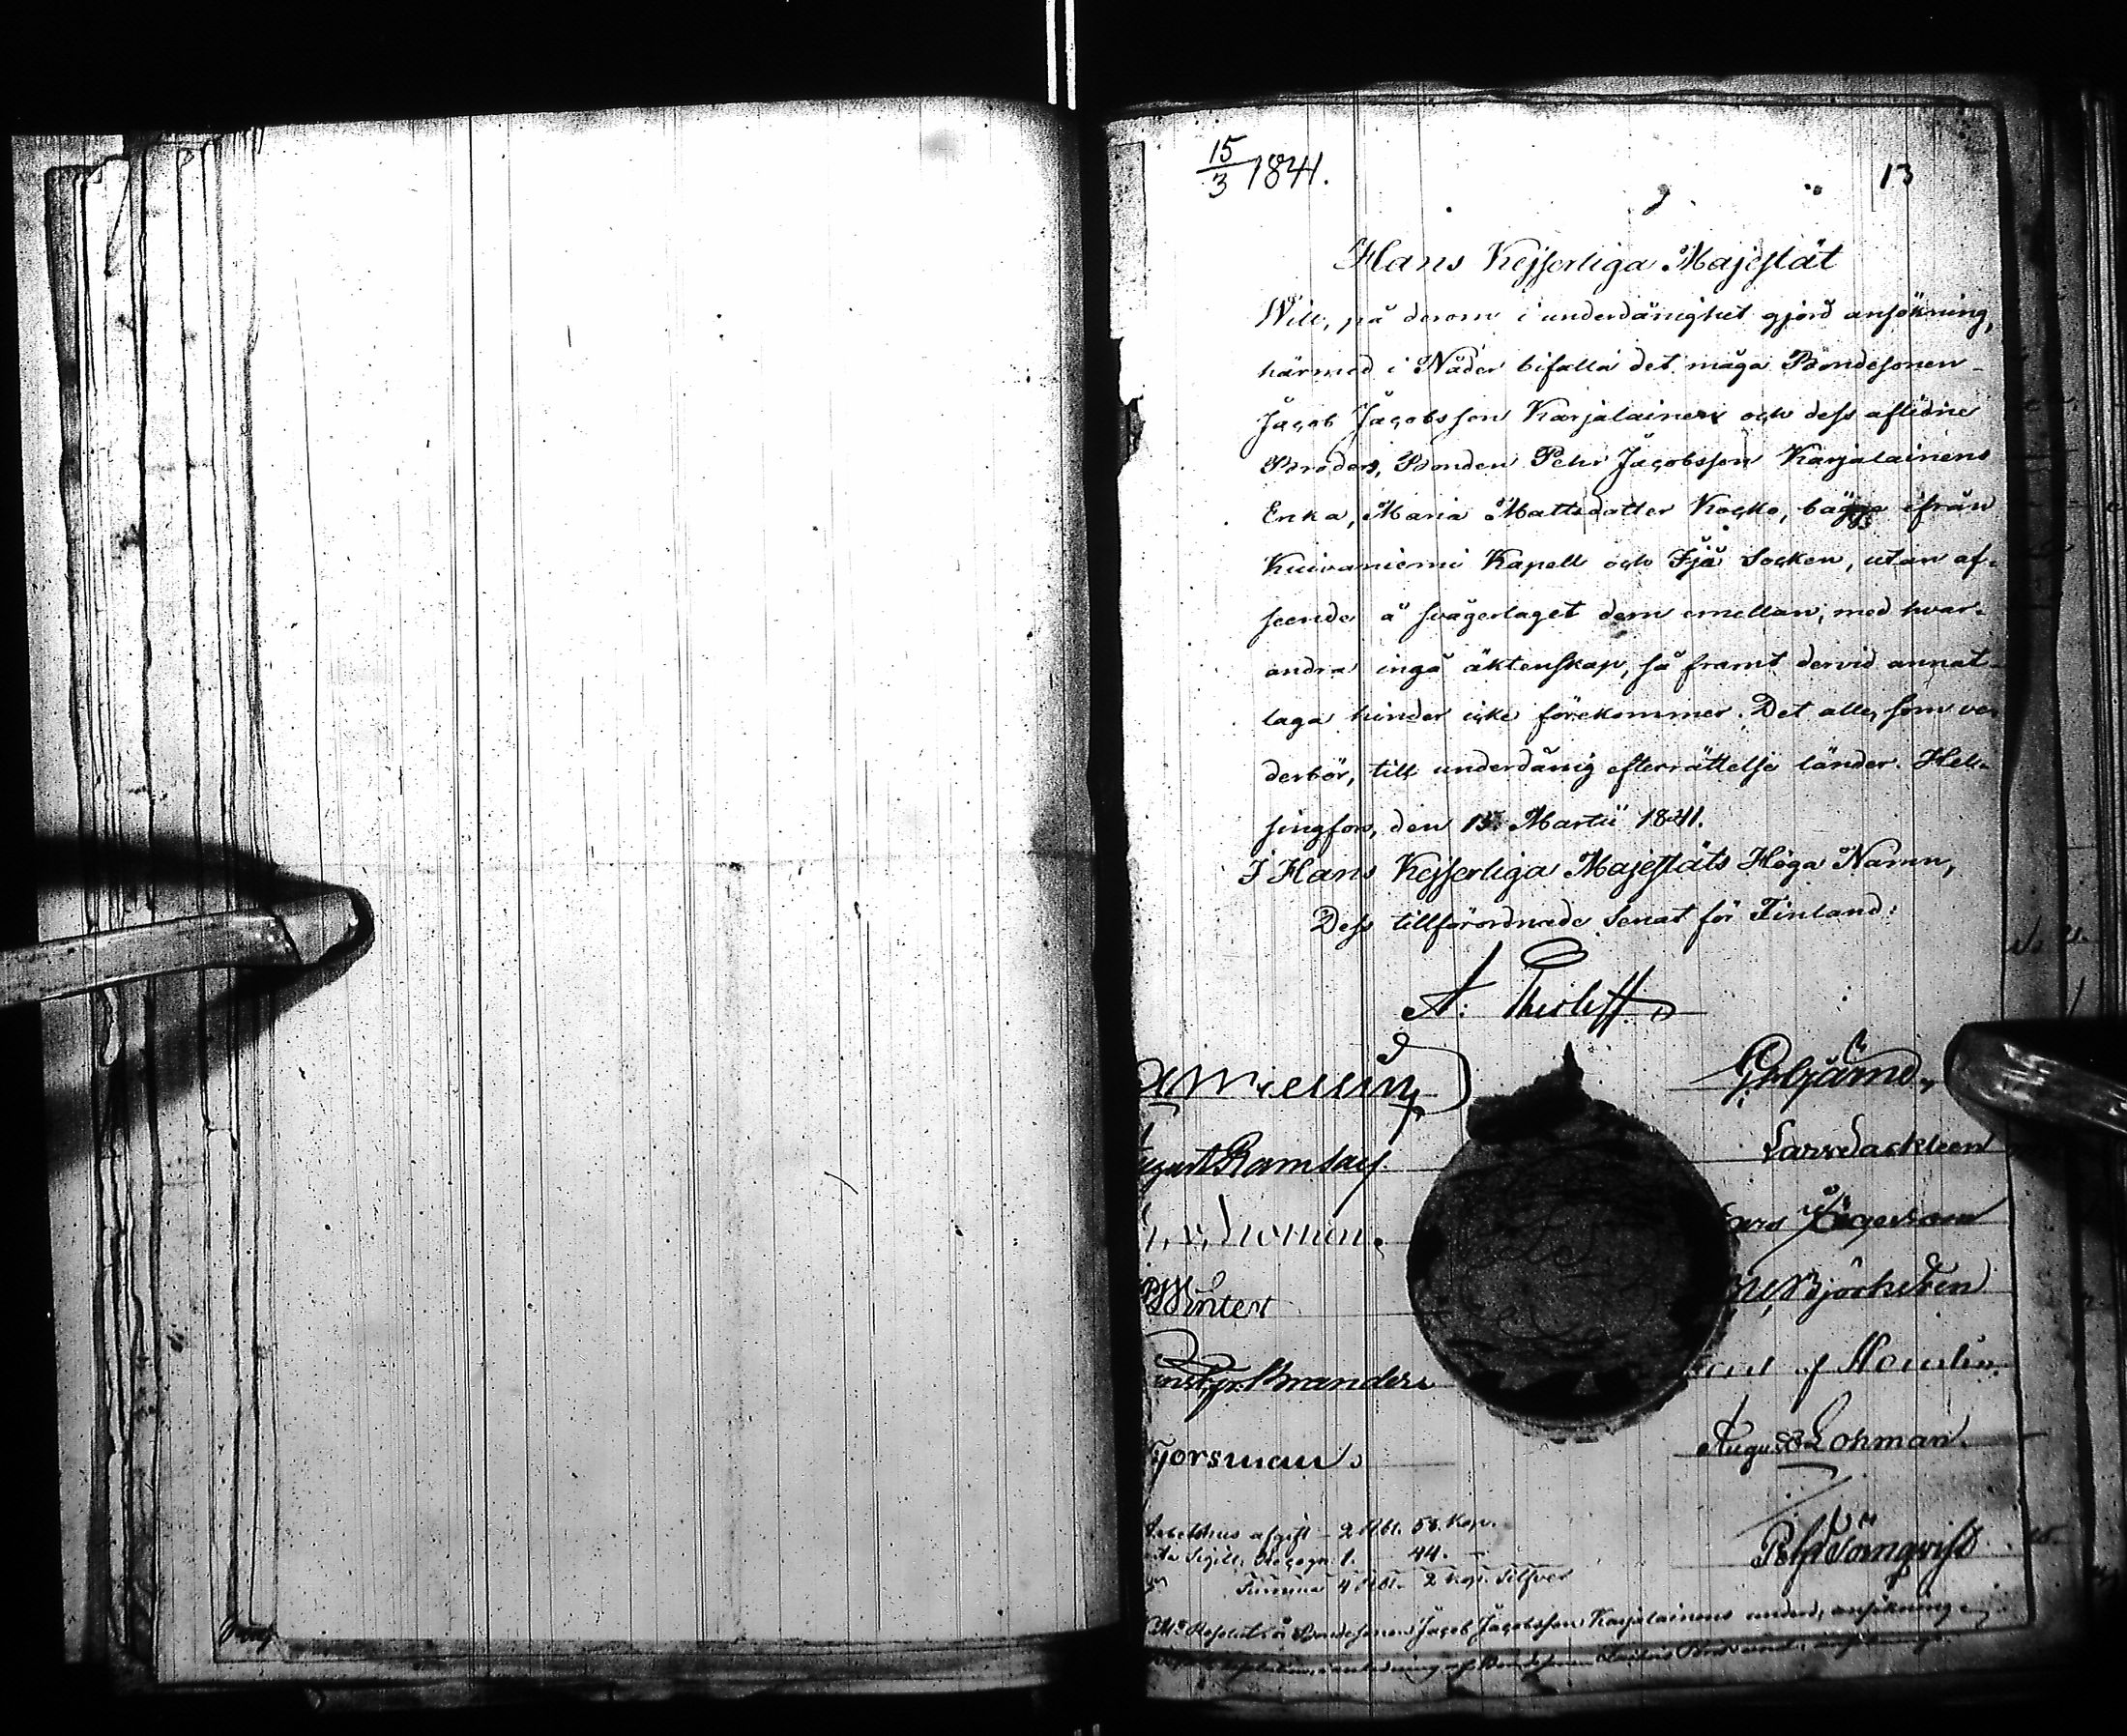 15/3 1841.
13
Hans Kejserliga Majestät
Will, på derom i underdånighet gjord ansökning,
härmed i Nåder bifalla det måga Bondesonen
Jacob Jacobsson Karjalainen och dess aflidne
Broders, Bonden Pehr Jacobsson Karjalainens
Enka, Maria Mattsdotter Kocko, bägge ifrån
Kuivaniemi Kapell och Ijå Socken, utan af-
seende å svågerlaget dem emellan, med hvar-
andra ingå äktenskap, så framt dervid annat
laga hinder icke förekommer. Det alle, som ve-
derbör, till underdånig efterrättelse länder. Hel-
singfors, den 15 Martii 1841.
I Hans Kejserliga Majestäts Höga Namn,
Dess tillförordnade Senat för Finland:
A: Thesleff
Ramsay
Lars Sackleen
Winter
Björksten
Branders
August Lohman
Forsman
afgift - 2 Rbl. 58. Kop.
Sigill. Recogn. 1. 44. -
Summa 4 Rbl. 2 Kop. Silfver
P Törnqvist
Bondesonen Jacob Jacobsson Karjalainens underd. ansökning